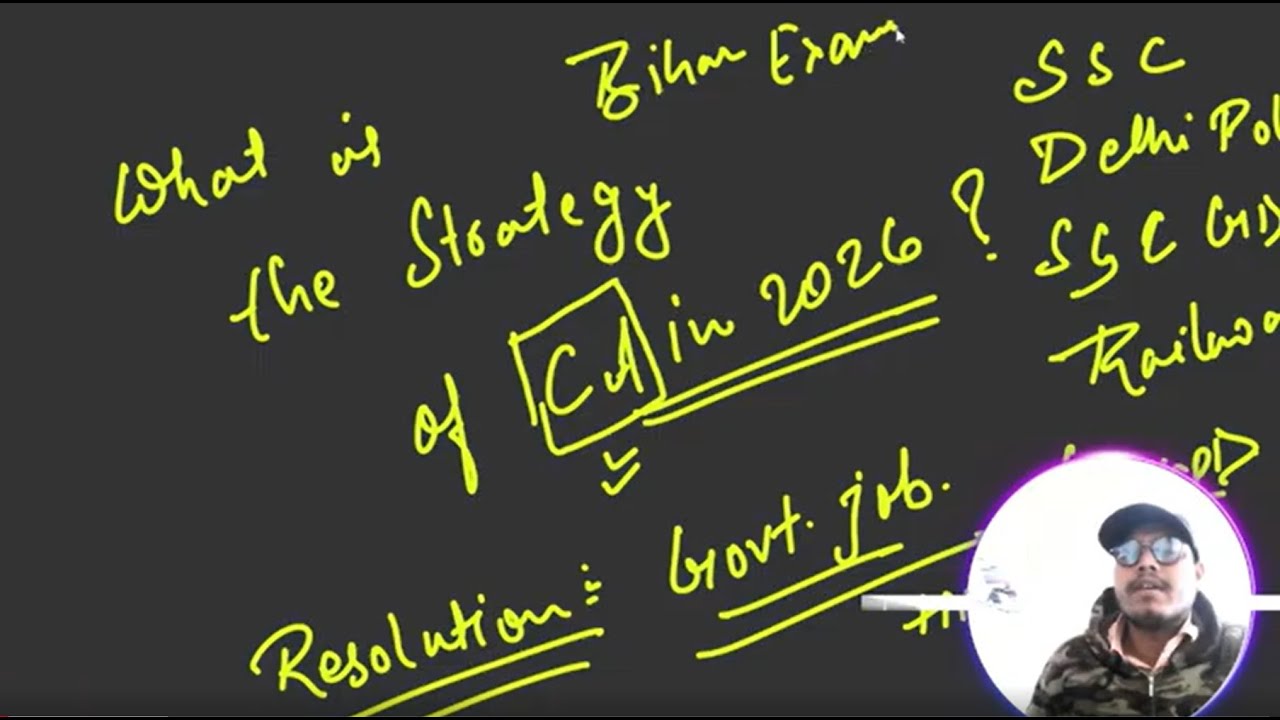 Bihar Exam
What is
the Strategy
of CA in 2026 ?
SSC
Delhi Pol
SSC GD
Railwa
Resolution :
Govt. job.